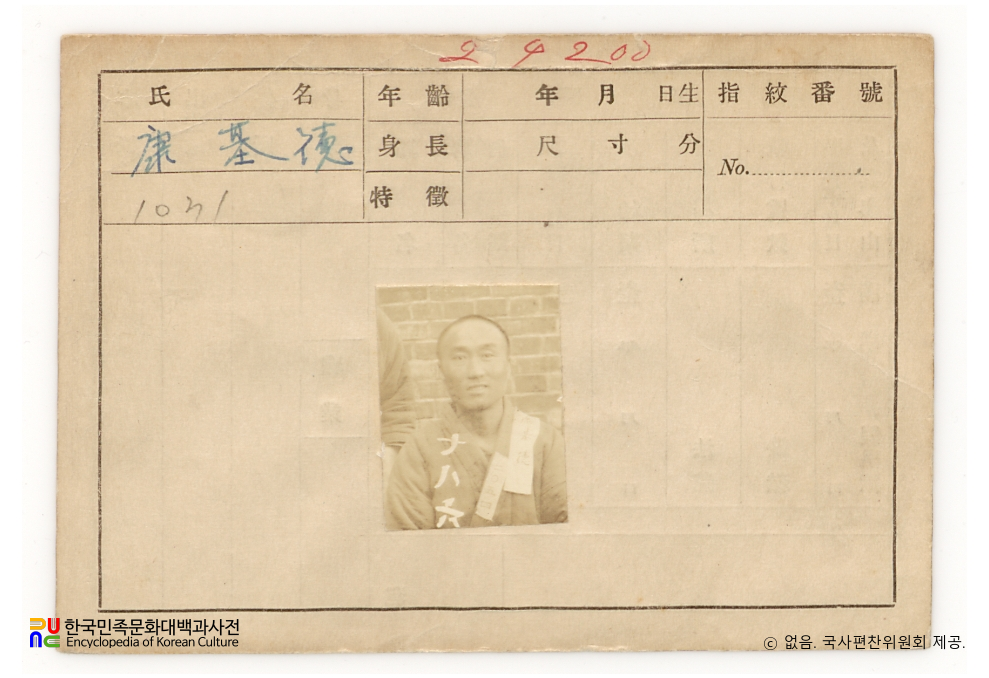 2 4200
氏 名 年 齡 年 月 日生 指 紋 番 號
康 基 德 身 長 尺 寸 分 No.
特 徵
한국민족문화대백과사전
Encyclopedia of Korean Culture
ⓒ 없음. 국사편찬위원회 제공.